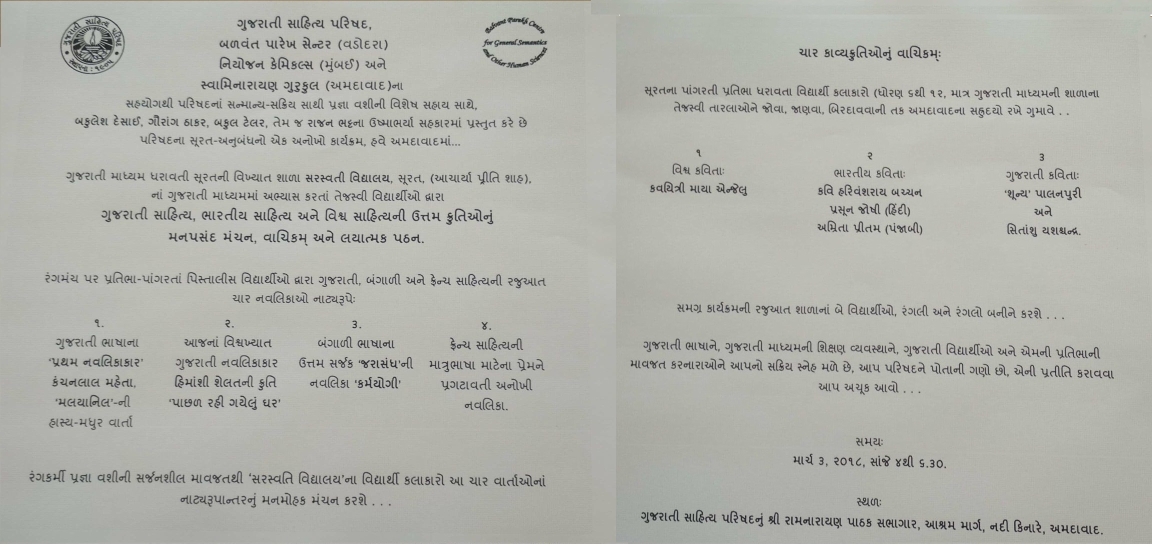 ગુજરાતી સાહિત્ય પરિષદ
સ્થાપના : ૧૯૦૫
ગુજરાતી સાહિત્ય પરિષદ,
બળવંત પારેખ સેન્ટર (વડોદરા)
નિયોજન કેમિકલ્સ (મુંબઈ) અને
સ્વામિનારાયણ ગુરુકુલ (અમદાવાદ)ના
Balvant Parekh Centre
for General Semantics
and Other Human Sciences
સહયોગથી પરિષદનાં સન્માન્ય-સક્રિય સાથી પ્રજ્ઞા વશીની વિશેષ સહાય સાથે,
બકુલેશ દેસાઈ, ગૌરાંગ ઠાકર, બકુલ ટેલર, તેમ જ રાજન ભટ્ટના ઉષ્માભર્યા સહકારમાં પ્રસ્તુત કરે છે
પરિષદના સૂરત-અનુબંધનો એક અનોખો કાર્યક્રમ, હવે અમદાવાદમાં...
ગુજરાતી માધ્યમ ધરાવતી સૂરતની વિખ્યાત શાળા સરસ્વતી વિદ્યાલય, સૂરત, (આચાર્યા પ્રીતિ શાહ),
નાં ગુજરાતી માધ્યમમાં અભ્યાસ કરતાં તેજસ્વી વિદ્યાર્થીઓ દ્વારા
ગુજરાતી સાહિત્ય, ભારતીય સાહિત્ય અને વિશ્વ સાહિત્યની ઉત્તમ કૃતિઓનું
મનપસંદ મંચન, વાચિકમ્ અને લયાત્મક પઠન.
રંગમંચ પર પ્રતિભા-પાંગરતાં પિસ્તાલીસ વિદ્યાર્થીઓ દ્વારા ગુજરાતી, બંગાળી અને ફ્રેન્ચ સાહિત્યની રજુઆત
ચાર નવલિકાઓ નાટ્યરૂપેઃ
૧.
ગુજરાતી ભાષાના
'પ્રથમ નવલિકાકાર'
કંચનલાલ મહેતા,
'મલયાનિલ'-ની
હાસ્ય-મધુર વાર્તા
૨.
આજનાં વિશ્વખ્યાત
ગુજરાતી નવલિકાકાર
હિમાંશી શેલતની કૃતિ
'પાછળ રહી ગયેલું ઘર'
૩.
બંગાળી ભાષાના
ઉત્તમ સર્જક 'જરાસંઘ'ની
નવલિકા 'કર્મયોગી'
૪.
ફ્રેન્ચ સાહિત્યની
માતૃભાષા માટેના પ્રેમને
પ્રગટાવતી અનોખી
નવલિકા.
રંગકર્મી પ્રજ્ઞા વશીની સર્જનશીલ માવજતથી 'સરસ્વતિ વિદ્યાલય'ના વિદ્યાર્થી કલાકારો આ ચાર વાર્તાઓનાં
નાટ્યરૂપાન્તરનું મનમોહક મંચન કરશે . . .
ચાર કાવ્યકૃતિઓનું વાચિકમ્ઃ
સૂરતના પાંગરતી પ્રતિભા ધરાવતા વિદ્યાર્થી કલાકારો (ધોરણ ૬થી ૧૨, માત્ર ગુજરાતી માધ્યમની શાળાના
તેજસ્વી તારલાઓને જોવા, જાણવા, બિરદાવવાની તક અમદાવાદના સહૃદયો રખે ગુમાવે . .
૧
વિશ્વ કવિતાઃ
કવયિત્રી માયા એન્જેલુ
૨
ભારતીય કવિતાઃ
કવિ હરિવંશરાય બચ્ચન
પ્રસૂન જોષી (હિંદી)
અમ્રિતા પ્રીતમ (પંજાબી)
૩
ગુજરાતી કવિતાઃ
'શૂન્ય' પાલનપુરી
અને
સિતાંશુ યશશ્ચન્દ્ર.
સમગ્ર કાર્યક્રમની રજુઆત શાળાનાં બે વિદ્યાર્થીઓ, રંગલી અને રંગલો બનીને કરશે . . .
ગુજરાતી ભાષાને, ગુજરાતી માધ્યમની શિક્ષણ વ્યવસ્થાને, ગુજરાતી વિદ્યાર્થીઓ અને એમની પ્રતિભાની
માવજત કરનારાઓને આપનો સક્રિય સ્નેહ મળે છે, આપ પરિષદને પોતાની ગણો છો, એની પ્રતીતિ કરાવવા
આપ અચૂક આવો . . .
સમયઃ
માર્ચ ૩, ૨૦૧૮, સાંજે ૪થી ૬.૩૦.
સ્થળઃ
ગુજરાતી સાહિત્ય પરિષદનું શ્રી રામનારાયણ પાઠક સભાગાર, આશ્રમ માર્ગ, નદી કિનારે, અમદાવાદ.